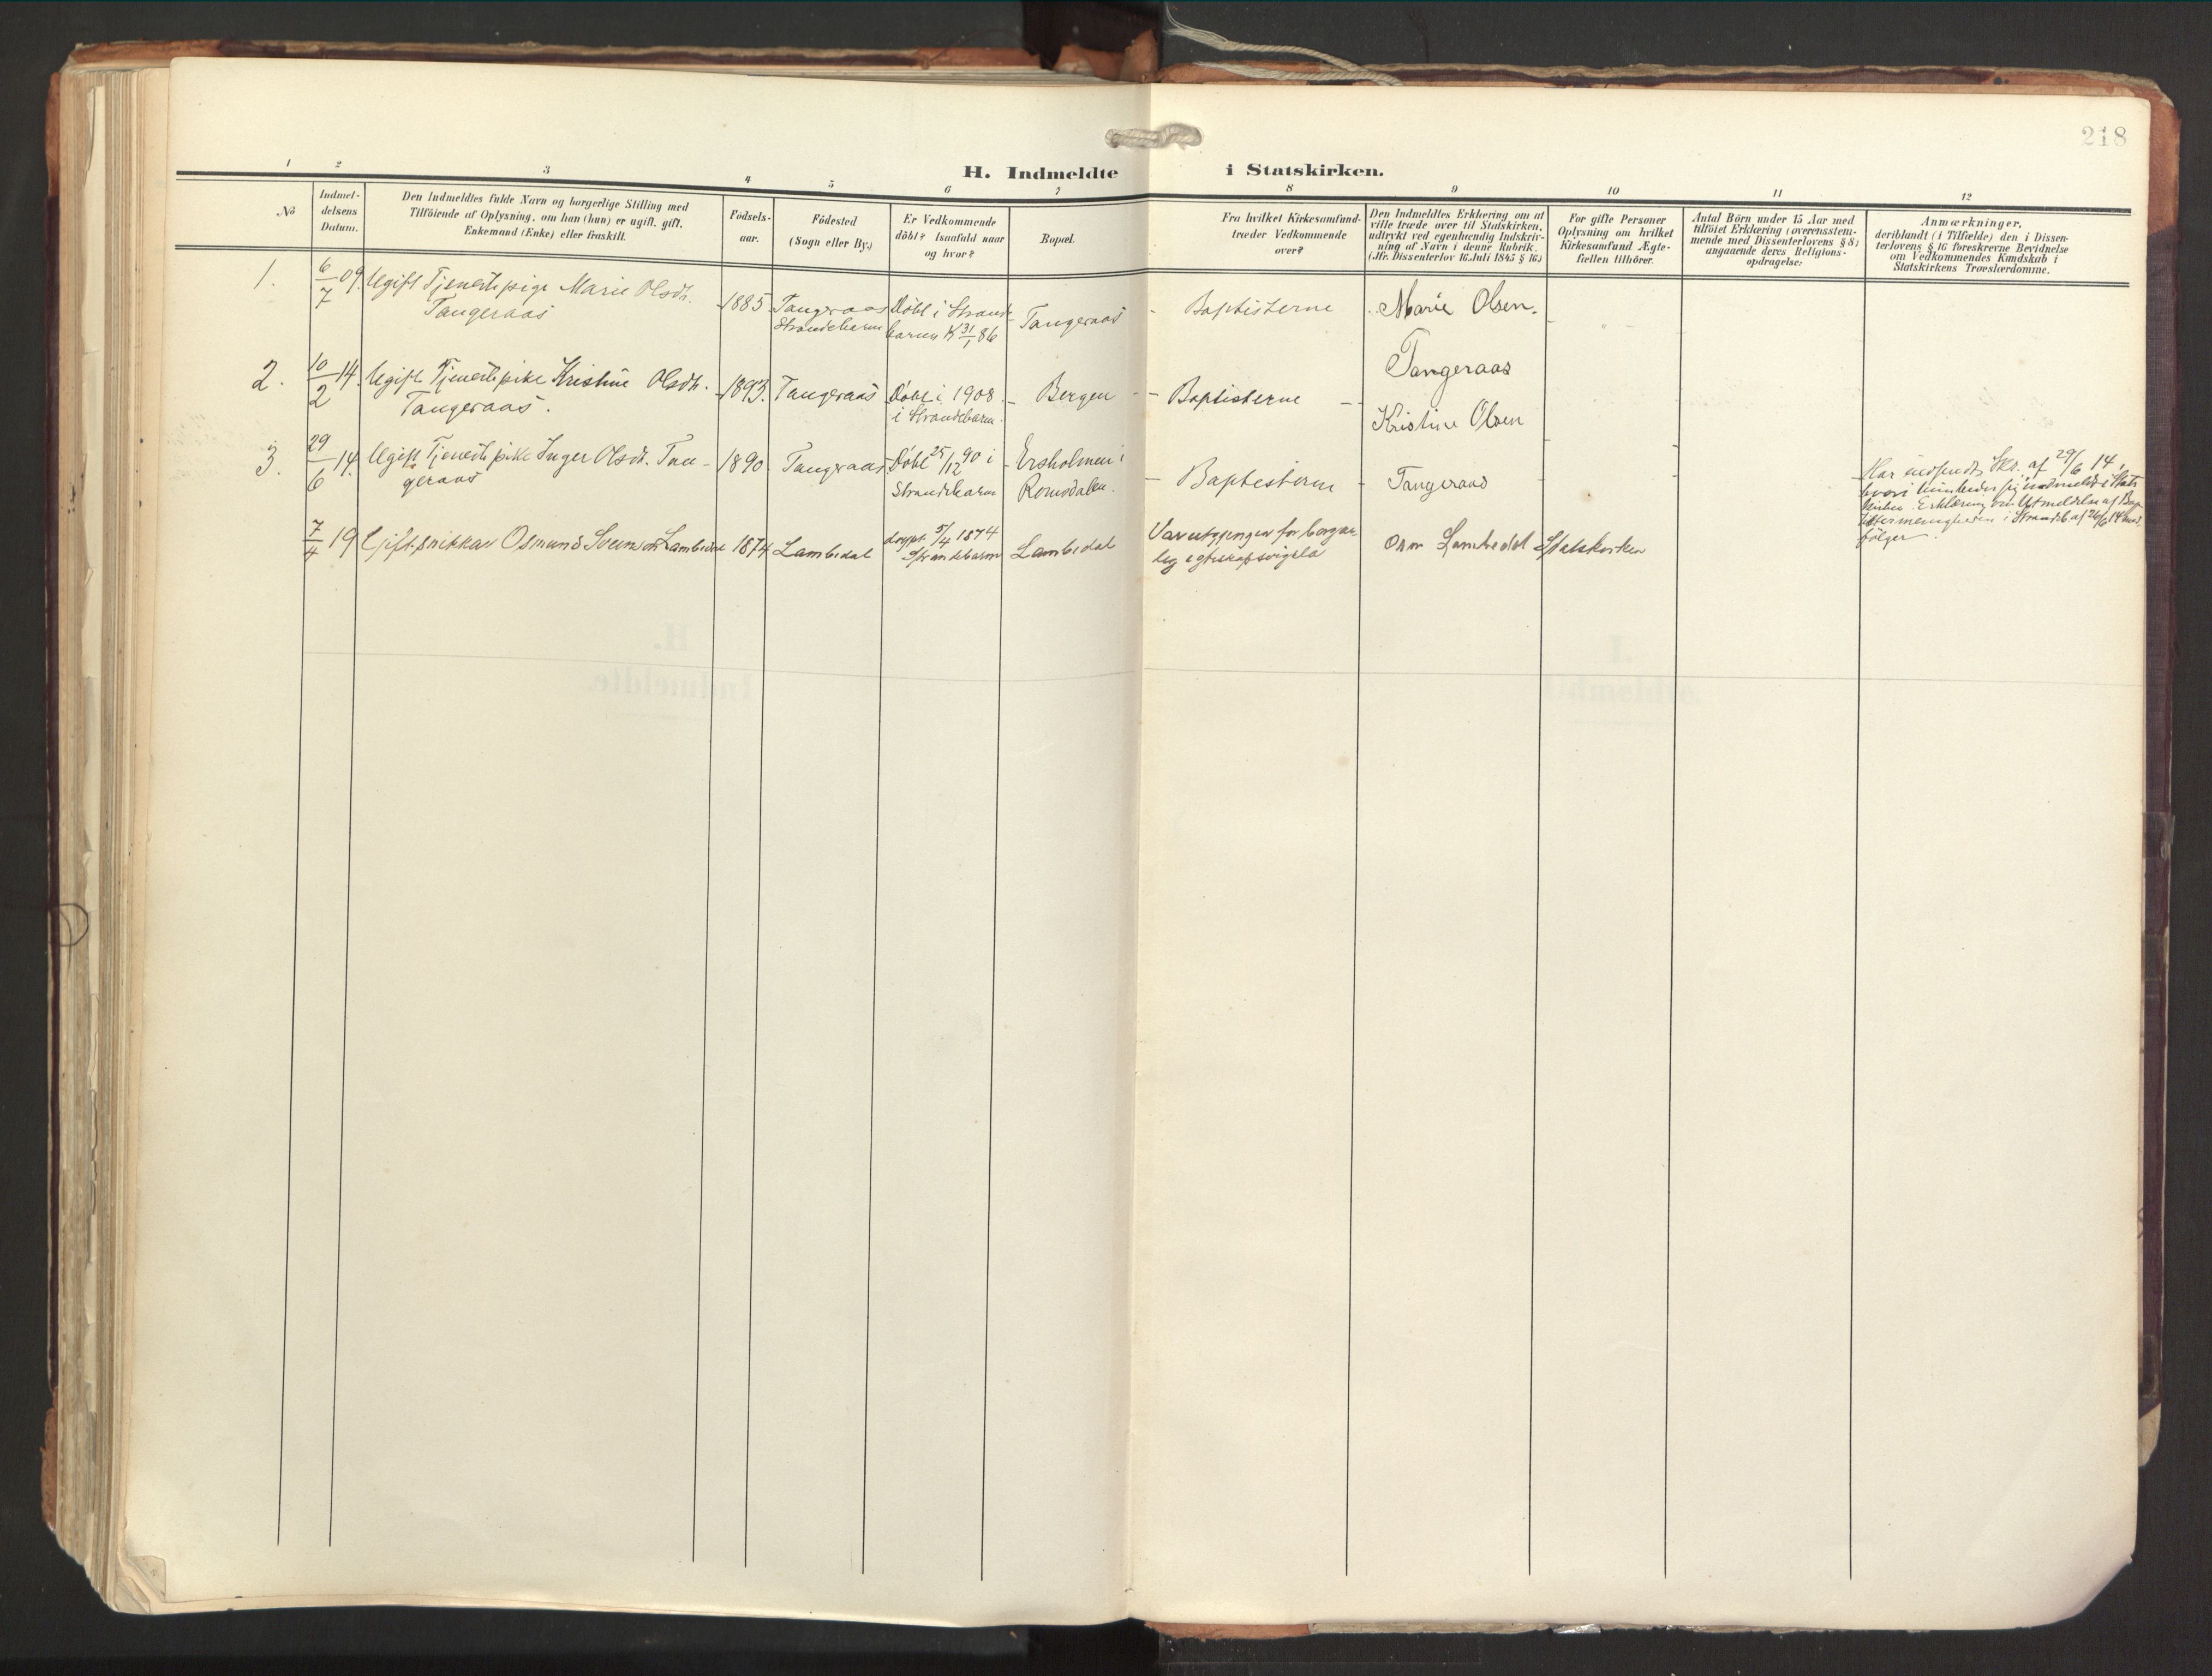 218
H. Indmeldte i Statskirken.
1 2 3 4 5 6 7 8 9 10 11 12
No
Indmel-
delsens
Datum.
Den Indmeldtes fulde Navn og borgerlige Stilling med
Tilföiende af Oplysning, om han (hun) er ugift, gift,
Enkemand (Enke) eller fraskilt.
Födsels-
aar.
Födested
(Sogn eller By.)
Er Vedkommende
döbt? Isaafald naar
og hvor?
Bopæl.
Fra hvilket Kirkesamfund
træder Vedkommende
over?
Den Indmeldtes Erklæring om at
ville træde over til Statskirken,
udtrykt ved egenhændig Indskriv-
ning af Navn i denne Rubrik.
(Jfr. Dissenterlov 16. Juli 1845 § 16.)
For gifte Personer
Oplysning om hvilket
Kirkesamfund Ægte-
fællen tilhörer.
Antal Börn under 15 Aar med
tilföiet Erklæring (overensstem-
mende med Dissenterlovens § 8)
angaaende deres Religions-
opdragelse:
Anmærkninger,
deriblandt (i Tilfælde) den i Dissen-
terlovens § 16 foreskrevne Bevidnelse
om Vedkommendes Kundskab i
Statskirkens Troeslærdomme.
1.
6/7 09.
Ugift Tjenestepige Marie Olsdt.
Tangeraas
1885
Tangeraas
Strandebarm
Döbt i Strande
barm K 31/1 86
Tangeraas
Baptisterne
Marie Olsen.
Tangeraas
2.
10/2 14.
Ugift Tjenestepike Kristine Olsdt.
Tangeraas.
1893.
Tangeraas
Döbt i 1908
i Strandebarm.
Bergen
Baptisterne
Kristine Olsen
Tangeraas
3.
29/6 14.
Ugift Tjenestepike Inger Olsdt. Tan-
geraas
1890
Tangeraas
Döbt 25/12 90 i
Strandebarm
Ersholmen i
Romsdalen.
Baptisterne
Har indsendt Skr. af 29/6 14,
hvori hun beder sig indmeldt i Stats
kirken. Erklæring om Utmeldelse af Bap
tistermenigheden i Strandb. af 26/6 14 med
fölger.
7/4 19
Gift snikkar Osmund Sveinson Lambedal
1874
Lambedal
döypt 5/4 1874
Strandebarm
Lambedal
Var utgjengen for borgar
leg egteskapsvigsla
Osm Lambedal
Statskirken
H.
Indmeldte.
I.
Udmeldte.